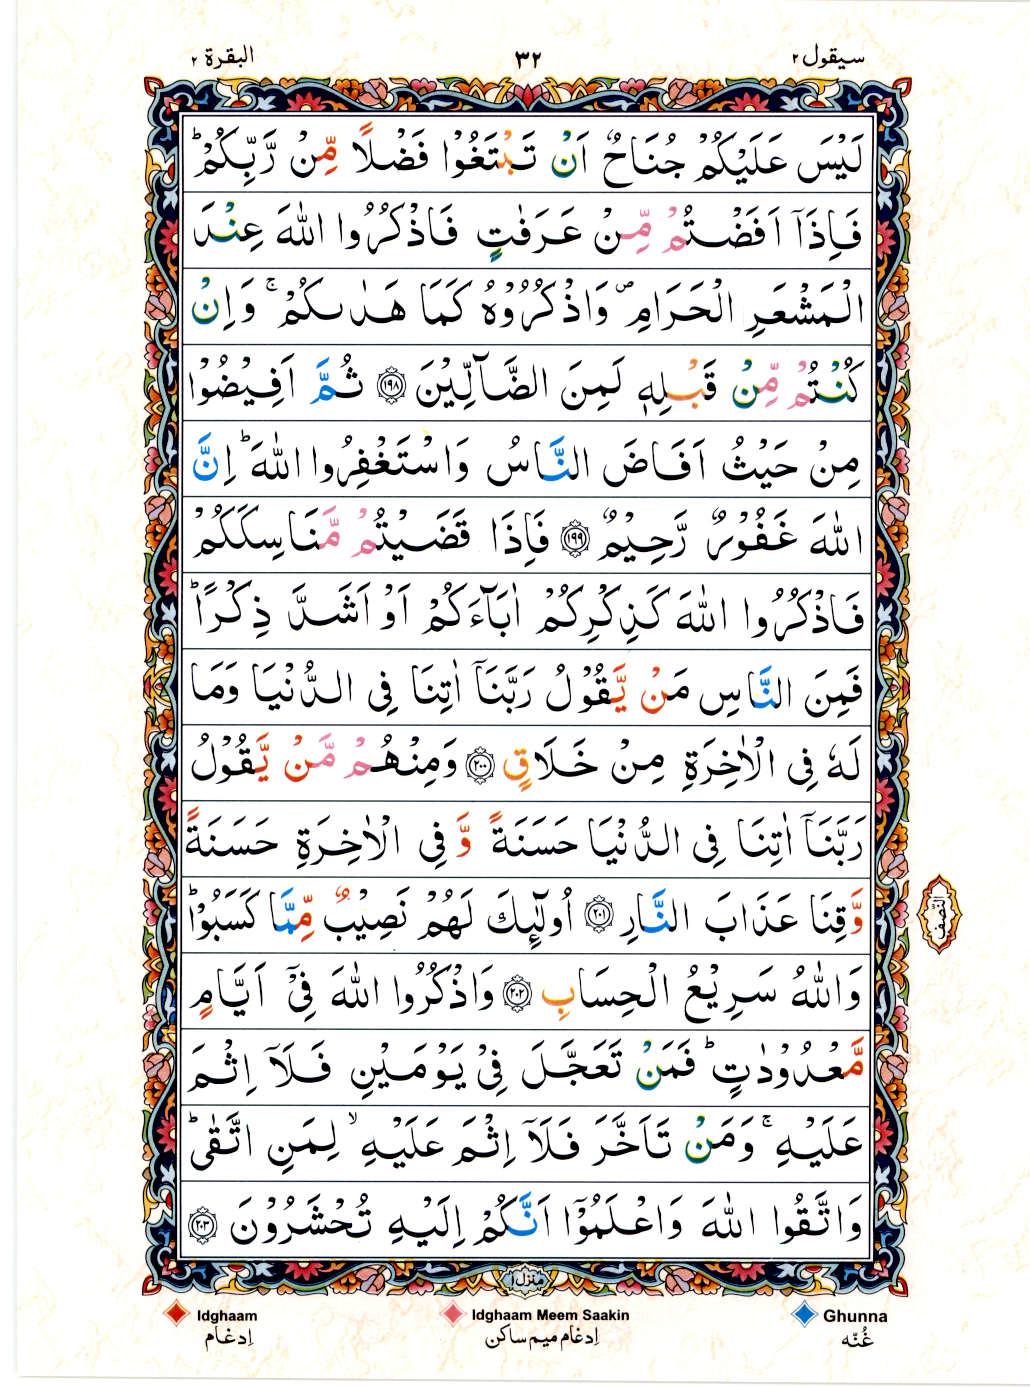 البقرة ٢
٣٢
سيقول ٢
لَيْسَ عَلَيْكُمْ جُنَاحٌ اَنْ تَبْتَغُوْا فَضْلًا مِّنْ رَّبِّكُمْ ؕ
فَاِذَاۤ اَفَضْتُمْ مِّنْ عَرَفٰتٍ فَاذْكُرُوا اللّٰهَ عِنْدَ
الْمَشْعَرِ الْحَرَامِ ۪ وَاذْكُرُوْهُ كَمَا هَدٰىكُمْ ۚ وَاِنْ
كُنْتُمْ مِّنْ قَبْلِهٖ لَمِنَ الضَّآلِّيْنَ ﴿۱۹۸﴾ ثُمَّ اَفِيْضُوْا
مِنْ حَيْثُ اَفَاضَ النَّاسُ وَاسْتَغْفِرُوا اللّٰهَ ؕ اِنَّ
اللّٰهَ غَفُوْرٌ رَّحِيْمٌ ﴿۱۹۹﴾ فَاِذَا قَضَيْتُمْ مَّنَاسِكَكُمْ
فَاذْكُرُوا اللّٰهَ كَذِكْرِكُمْ اٰبَآءَكُمْ اَوْ اَشَدَّ ذِكْرًا ؕ
فَمِنَ النَّاسِ مَنْ يَّقُوْلُ رَبَّنَاۤ اٰتِنَا فِى الدُّنْيَا وَمَا
لَهٗ فِى الْاٰخِرَةِ مِنْ خَلَاقٍ ﴿۲۰۰﴾ وَمِنْهُمْ مَّنْ يَّقُوْلُ
رَبَّنَاۤ اٰتِنَا فِى الدُّنْيَا حَسَنَةً وَّ فِى الْاٰخِرَةِ حَسَنَةً
وَّقِنَا عَذَابَ النَّارِ ﴿۲۰۱﴾ اُولٰٓئِكَ لَهُمْ نَصِيْبٌ مِّمَّا كَسَبُوْا ؕ
النِّصْف
وَاللّٰهُ سَرِيْعُ الْحِسَابِ ﴿۲۰۲﴾ وَاذْكُرُوا اللّٰهَ فِىْۤ اَيَّامٍ
مَّعْدُوْدٰتٍ ؕ فَمَنْ تَعَجَّلَ فِىْ يَوْمَيْنِ فَلَاۤ اِثْمَ
عَلَيْهِ ۚ وَمَنْ تَاَخَّرَ فَلَاۤ اِثْمَ عَلَيْهِ ۙ لِمَنِ اتَّقٰى ؕ
وَاتَّقُوا اللّٰهَ وَاعْلَمُوْۤا اَنَّكُمْ اِلَيْهِ تُحْشَرُوْنَ ﴿۲۰۳﴾
منزل ۱
Idghaam
Idghaam Meem Saakin
Ghunna
اِدغام
اِدغام میم ساکن
غُنّه